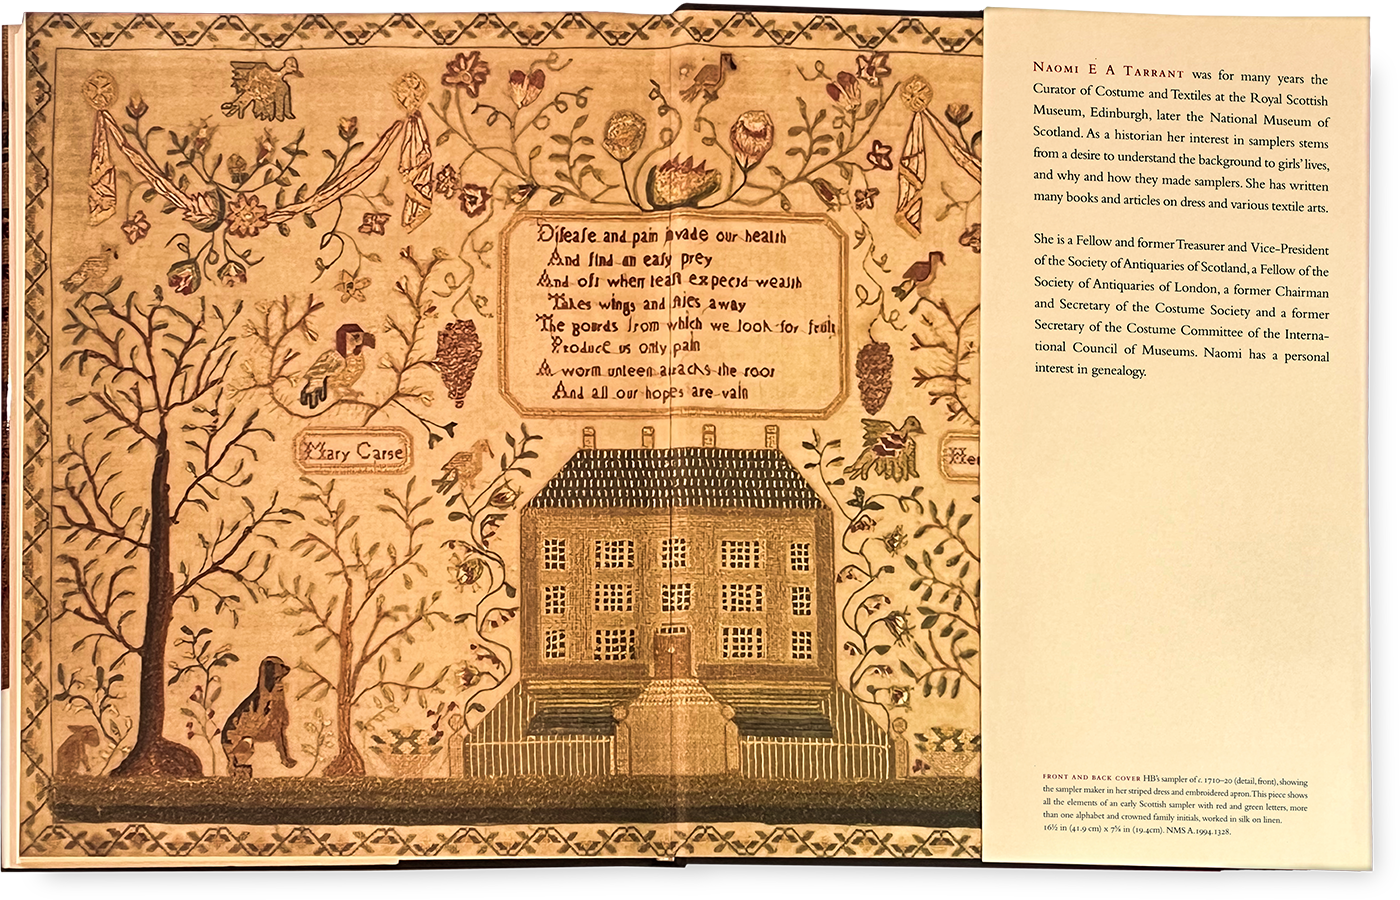 Diſeaſe and pain invade our health
And find an eaſy prey
And oft when leaſt expectd wealth
Takes wings and flies away
The gourds from which we look for fruit
Produce us only pain
A worm unſeen attacks the root
And all our hopes are vain
Mary Carse
NAOMI E A TARRANT was for many years the
Curator of Costume and Textiles at the Royal Scottish
Museum, Edinburgh, later the National Museum of
Scotland. As a historian her interest in samplers stems
from a desire to understand the background to girls' lives,
and why and how they made samplers. She has written
many books and articles on dress and various textile arts.
She is a Fellow and former Treasurer and Vice-President
of the Society of Antiquaries of Scotland, a Fellow of the
Society of Antiquaries of London, a former Chairman
and Secretary of the Costume Society and a former
Secretary of the Costume Committee of the Interna-
tional Council of Museums. Naomi has a personal
interest in genealogy.
FRONT AND BACK COVER HB's sampler of c. 1710–20 (detail, front), showing
the sampler maker in her striped dress and embroidered apron. This piece shows
all the elements of an early Scottish sampler with red and green letters, more
than one alphabet and crowned family initials, worked in silk on linen.
16½ in (41.9 cm) x 7⅝ in (19.4cm). NMS A.1994.1328.